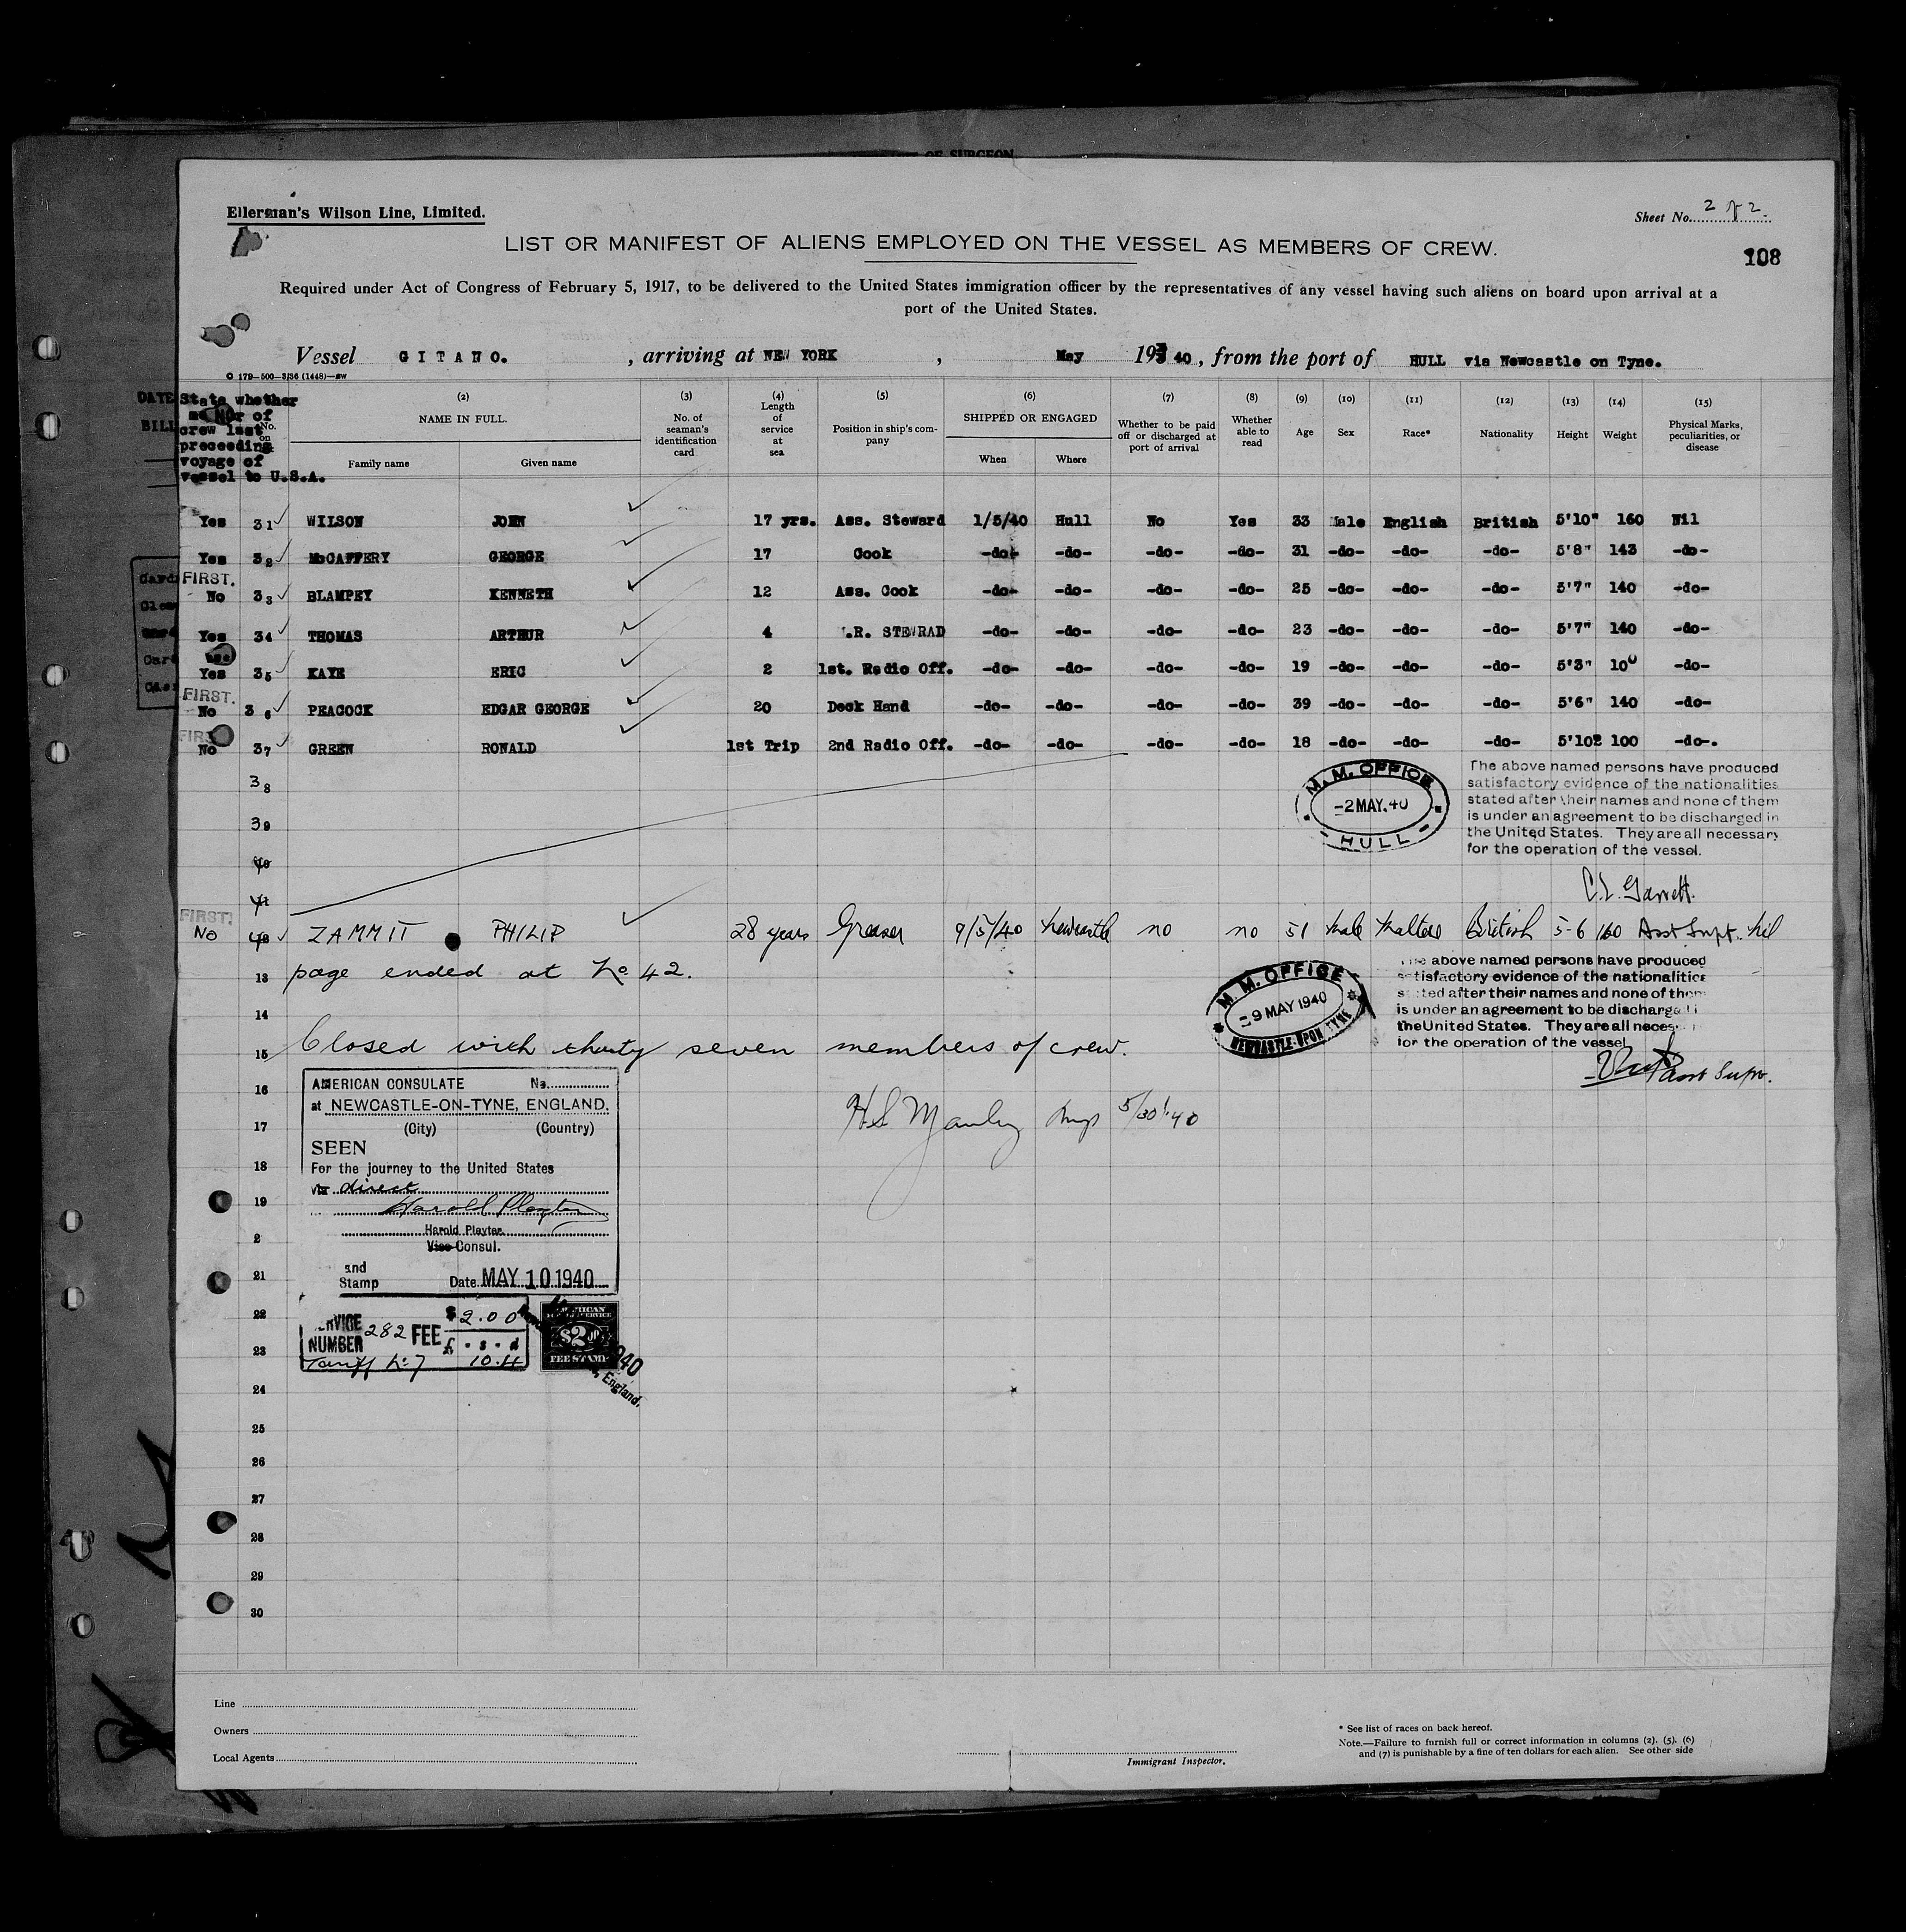 OF SURGEON
Ellerman's Wilson Line, Limited.
Sheet No. 2 of 2.
LIST OR MANIFEST OF ALIENS EMPLOYED ON THE VESSEL AS MEMBERS OF CREW.
108
Required under Act of Congress of February 5, 1917, to be delivered to the United States immigration officer by the representatives of any vessel having such aliens on board upon arrival at a
port of the United States.
Vessel GITANO. , arriving at NEW YORK , May 193 40 , from the port of HULL via Newcastle on Tyne.
C 179—500—3/36 (1448)—sw
State whether member of crew last preceeding voyage of vessel to U.S.A.
No. on
(2) NAME IN FULL. Family name Given name
(3) No. of seaman's identification card
(4) Length of service at sea
(5) Position in ship's company
(6) SHIPPED OR ENGAGED When Where
(7) Whether to be paid off or discharged at port of arrival
(8) Whether able to read
(9) Age
(10) Sex
(11) Race*
(12) Nationality
(13) Height
(14) Weight
(15) Physical Marks, peculiarities, or disease
Yes 31 WILSON JOHN 17 yrs. Ass. Steward 1/5/40 Hull No Yes 33 Male English British 5'10" 160 Nil
Yes 32 McCAFFERY GEORGE 17 Cook -do- -do- -do- -do- 31 -do- -do- -do- 5'8" 143 -do-
FIRST.
No 33 BLAMPEY KENNETH 12 Ass. Cook -do- -do- -do- -do- 25 -do- -do- -do- 5'7" 140 -do-
Yes 34 THOMAS ARTHUR 4 .R. STEWRAD -do- -do- -do- -do- 23 -do- -do- -do- 5'7" 140 -do-
Yes 35 KAYE ERIC 2 1st. Radio Off. -do- -do- -do- -do- 19 -do- -do- -do- 5'3" 100 -do-
FIRST.
No 36 PEACOCK EDGAR GEORGE 20 Deck Hand -do- -do- -do- -do- 39 -do- -do- -do- 5'6" 140 -do-
FIRS
No 37 GREEN RONALD 1st Trip 2nd Radio Off. -do- -do- -do- -do- 18 -do- -do- -do- 5'10 100 -do-.
38
39
40
41
M. M. OFFICE
-2 MAY. 40
HULL
The above named persons have produced
satisfactory evidence of the nationalities
stated after their names and none of them
is under an agreement to be discharged in
the United States. They are all necessary
for the operation of the vessel.
C.L. Garrett.
Asst Supt.
FIRST.
No 42 ZAMMIT PHILIP 28 years Greaser 9/5/40 Newcastle no no 51 Male Maltese British 5-6 160 Nil
13 page ended at No 42.
14
15 Closed with thirty seven members of crew.
M. M. OFFICE
9 MAY 1940
NEWCASTLE-UPON TYNE
The above named persons have produced
satisfactory evidence of the nationalities
stated after their names and none of them
is under an agreement to be discharge
the United States. They are all neces
for the operation of the vessel
Asst Supt.
H S Manley Insp 5/30/40
AMERICAN CONSULATE No.
at NEWCASTLE-ON-TYNE, ENGLAND.
(City) (Country)
SEEN
For the journey to the United States
via direct
Harold Playter
Harold Playter.
Vice Consul.
and
Stamp Date MAY 10 1940
SERVICE NUMBER 282 FEE $2.00
£ . s . d
Tariff No 7 10.4
AMERICAN
SERVICE
$2.00
FEE STAMP
40
England.
16
17
18
19
2
21
22
23
24
25
26
27
28
29
30
Line
Owners
Local Agents
Immigrant Inspector.
* See list of races on back hereof.
Note.—Failure to furnish full or correct information in columns (2). (5). (6)
and (7) is punishable by a fine of ten dollars for each alien. See other side